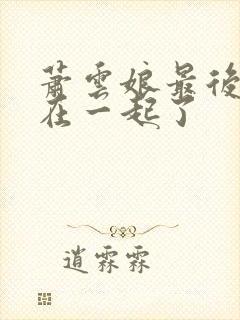 蕭雲娘最後
在一起了
逍霖霖